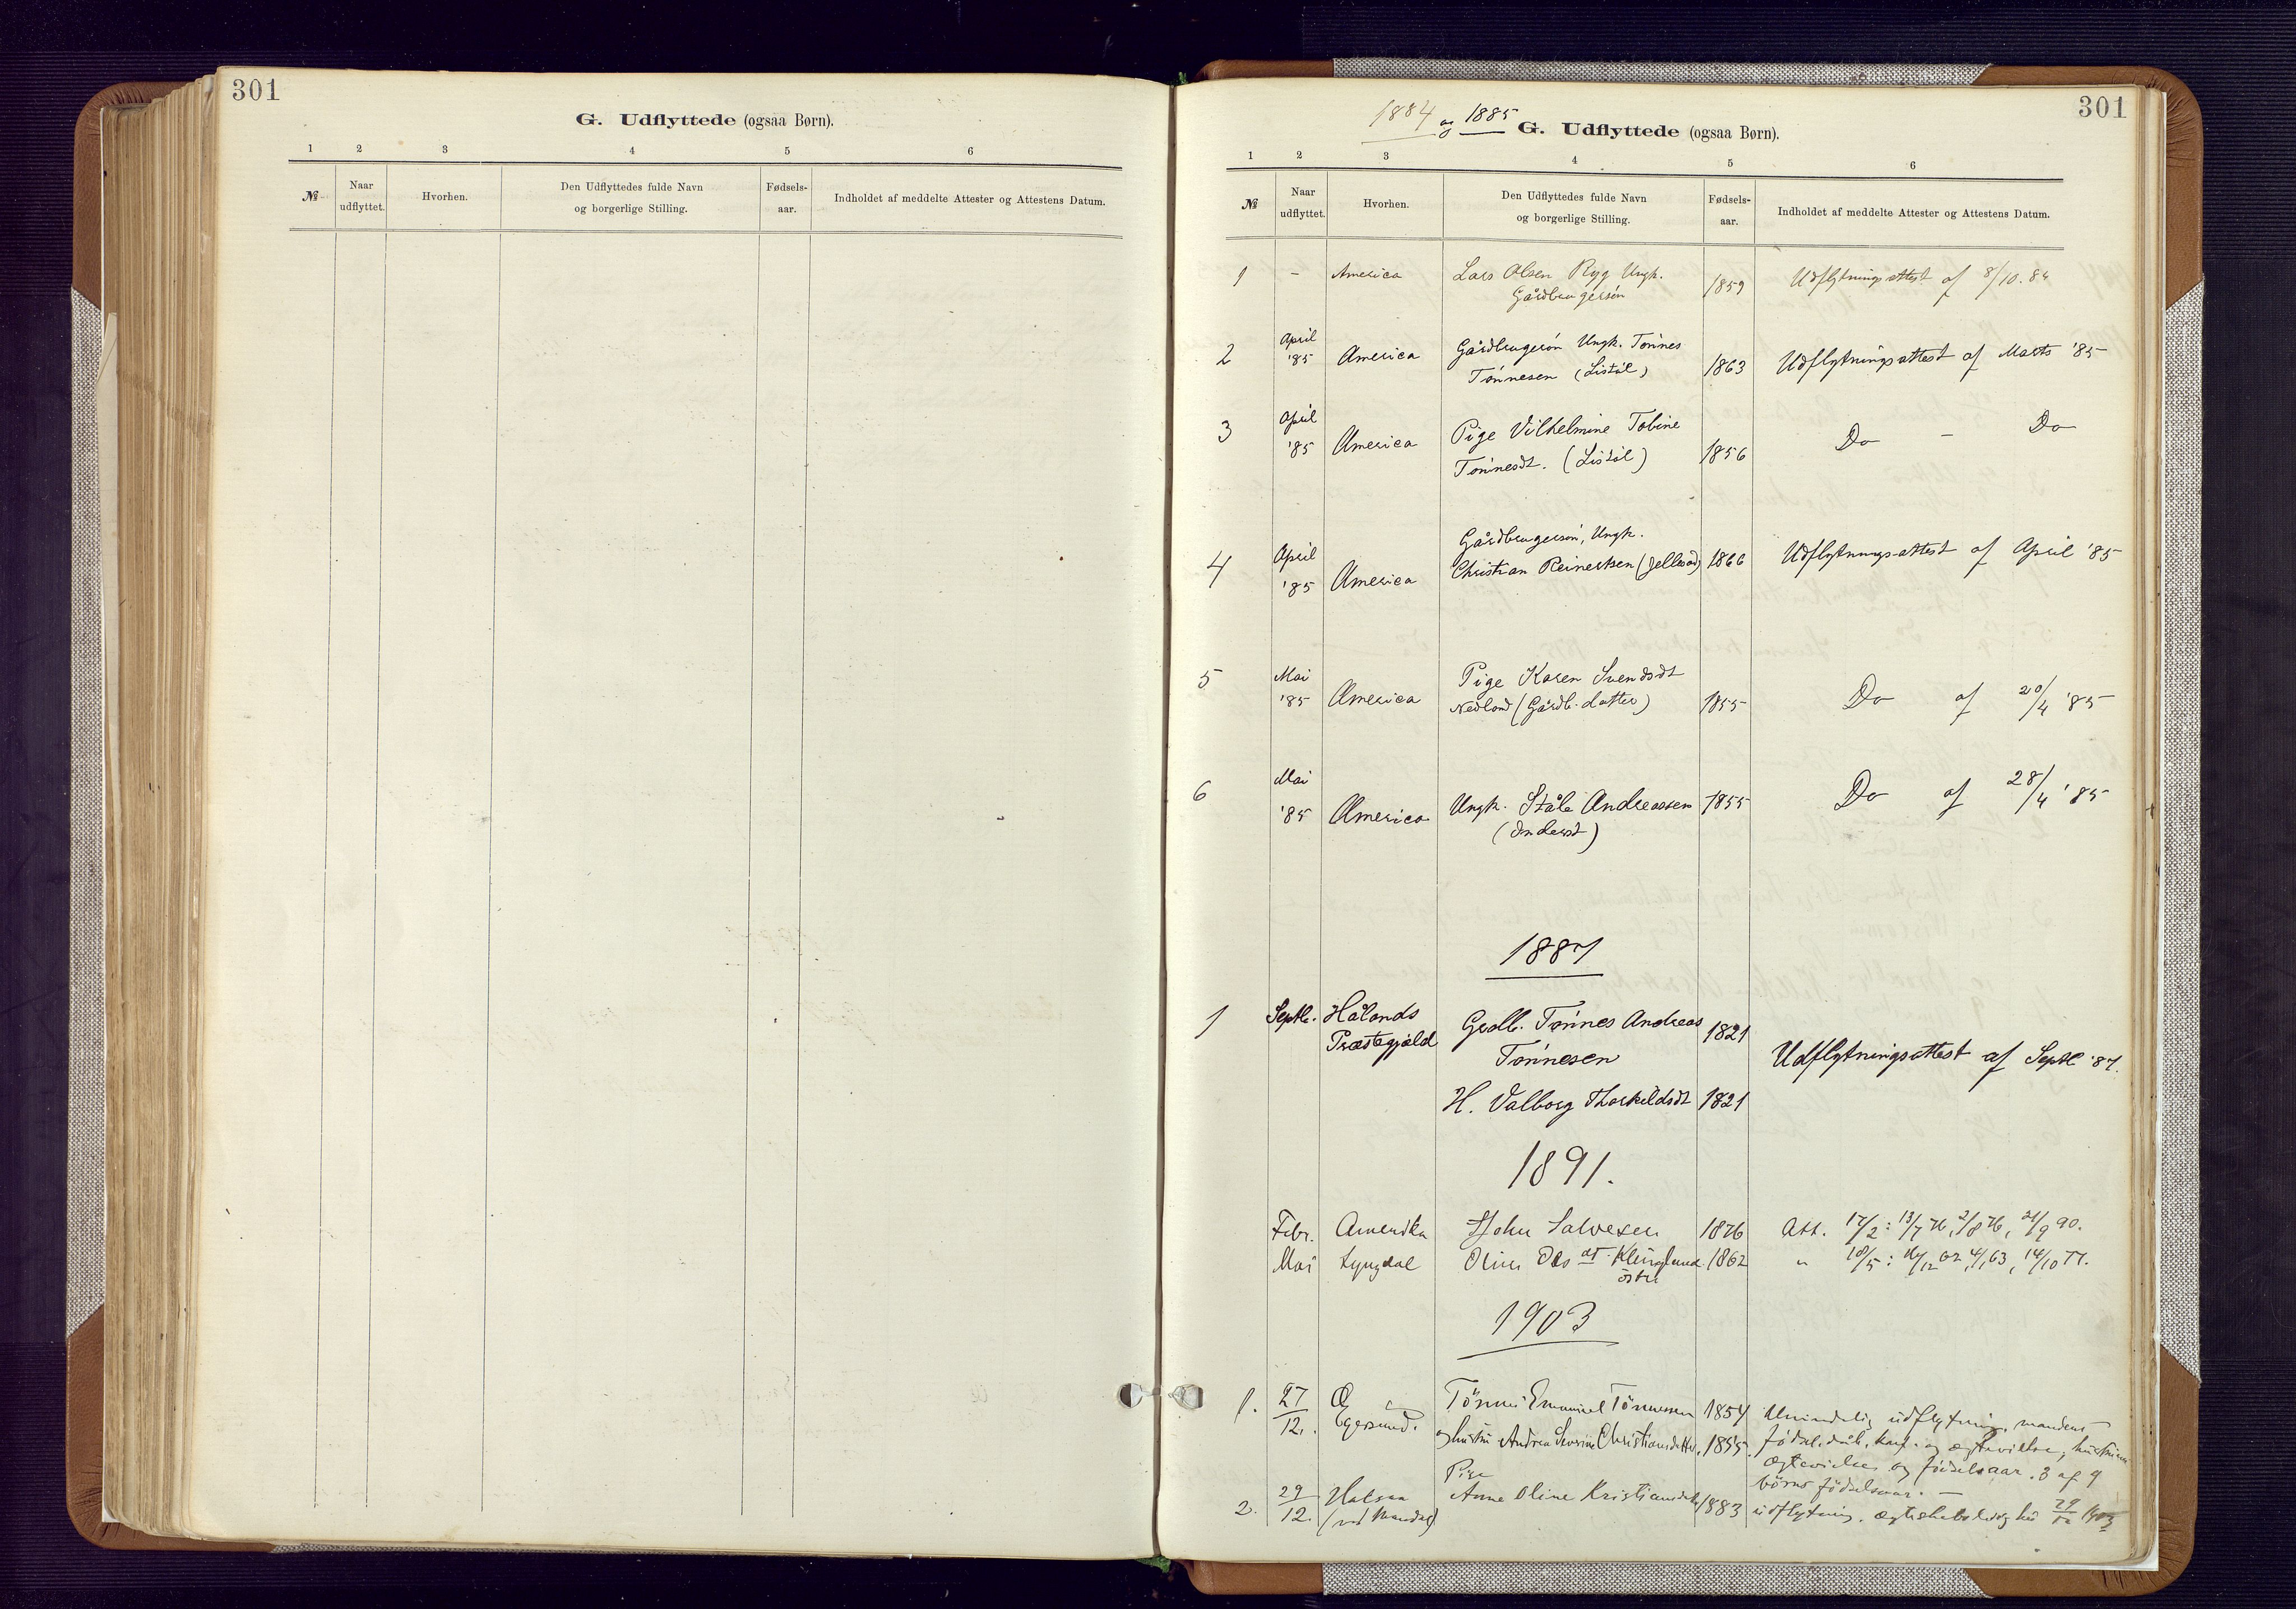 301
G. Udflyttede (ogsaa Børn).
1 2 3 4 5 6
№
Naar udflyttet.
Hvorhen.
Den Udflyttedes fulde Navn
og borgerlige Stilling.
Fødsels-
aar.
Indholdet af meddelte Attester og Attestens Datum.
301
1884 og 1885
G. Udflyttede (ogsaa Børn).
1 2 3 4 5 6
№
Naar udflyttet.
Hvorhen.
Den Udflyttedes fulde Navn
og borgerlige Stilling.
Fødsels-
aar.
Indholdet af meddelte Attester og Attestens Datum.
1 – America Lars Olsen Ryg Ungk.
Gårdbrugersön 1859 Udflytningsattest af 8/10. 84
2 April '85 America Gårdbrugersön Ungk. Tønnes
Tønnesen (Listöl) 1863 Udflytningsattest af Marts '85
3 April '85 America Pige Vilhelmine Tobine
Tønnesdt. (Listöl) 1856 Do – Do
4 April '85 America Gårdbrugersön, Ungk.
Christian Reinertsen 1866 Udflytningsattest af April '85
5 Mai '85 America Pige Karen Svendsdt
Nedland (Gårdb. datter) 1855 Do af 20/4 '85
6 Mai '85 America Ungk. Ståle Andreassen 1855 Do af 28/4 '85
1887
1 Septb. Hålands
Præstegjæld Grdb. Tønnes Andreas 1821
Tønnesen Udflytningsattest af Septb '87.
H. Valborg Thorkildsdt 1821
1891.
Febr. Amerika John Salvesen 1876 Att. 17/2: 13/7 76, 2/8 76, 21/9 90.
Mai Lyngdal Olsdt Klungland 1862 " 18/5: 12 62, 4/1 63, 14/10 77.
østre
1903
1. 27/12. Egersund. Tönnes Emanuel Tönnessen 1854 Almindelig udflytning, mandens
og hustru Andrea Severine Christiansdatter. 1855. fødsel, dåb, konf. og ægtevielse, hustruens
ægtevielse og fødselsaar. 3 af 4
børns fødselsaar. –
2. 29/12. Halsaa
(ved Mandal) Pige
Anne Oline Kristiansdatter 1883 udflytning. ægteskabsledighed 29/12 1903